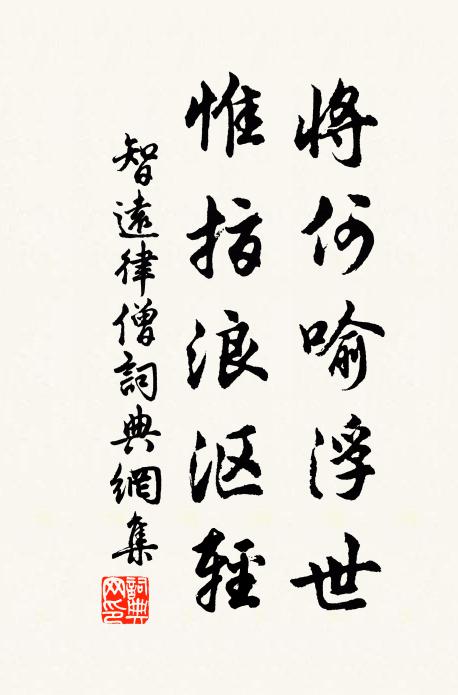 將何喻浮世
惟指浪沤輕
智遠律僧詞典網集
詞典網印